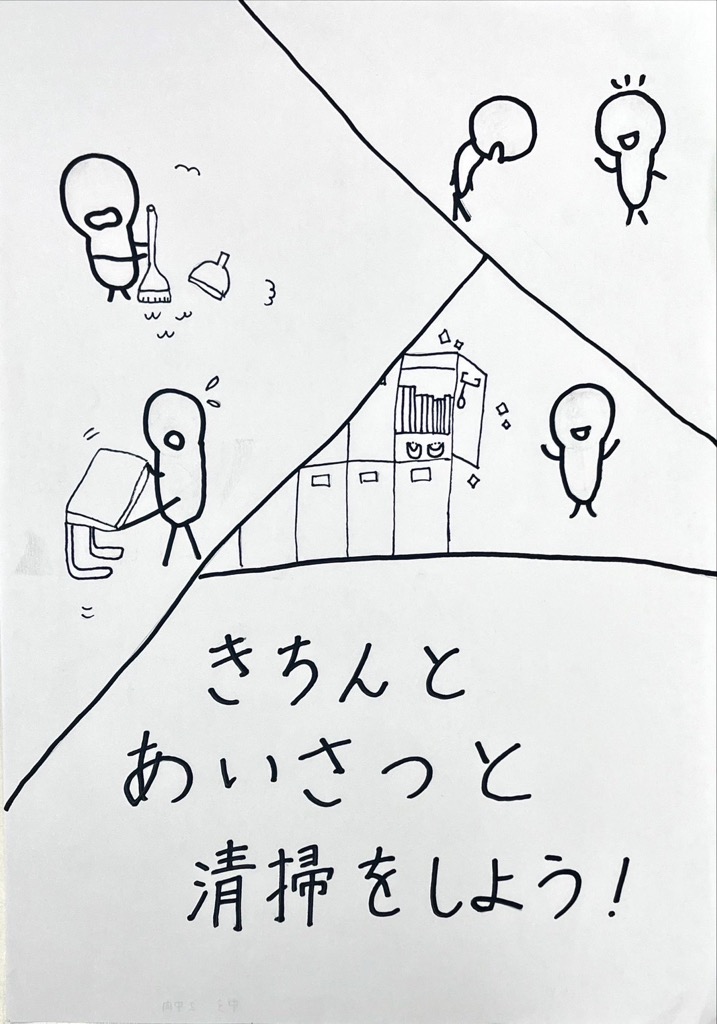 きちんと
あいさつと
清掃をしよう！